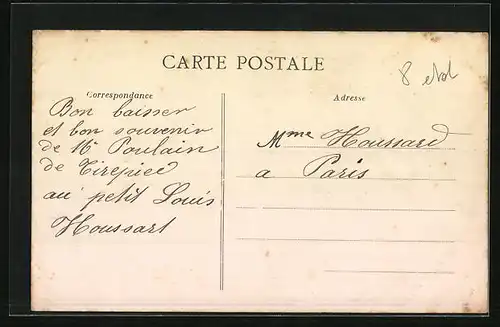 CARTE POSTALE
8
Correspondance
Adresse
Bon baisser
et bon souvenir
de Poulain
de Tirepied
au petit Louis
Houssart
Mme Houssard
a Paris